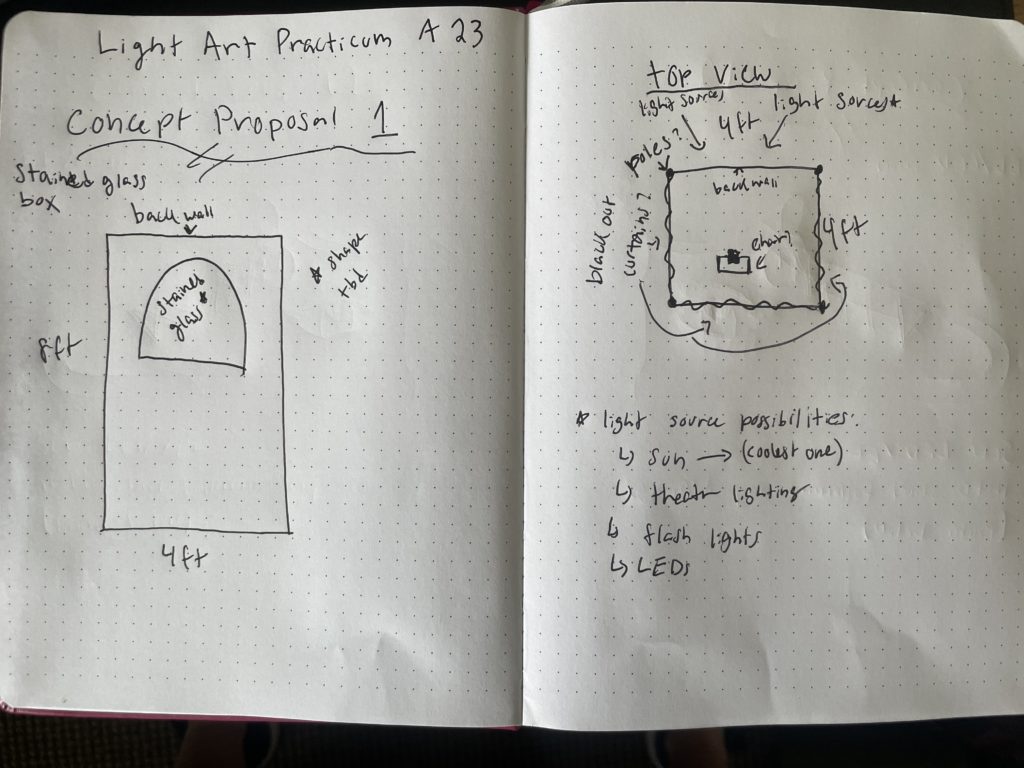 Light Art Practicum A 23
Concept Proposal 1
Stained glass
box
back wall
* shape
tbd
stained
glass*
8ft
4ft
top view
light sources
light sources*
4ft
poles?
back wall
black out
curtains?
chair?
4ft
* light source possibilities:
↳ sun → (coolest one)
↳ theatr lighting
↳ flash lights
↳ LEDs